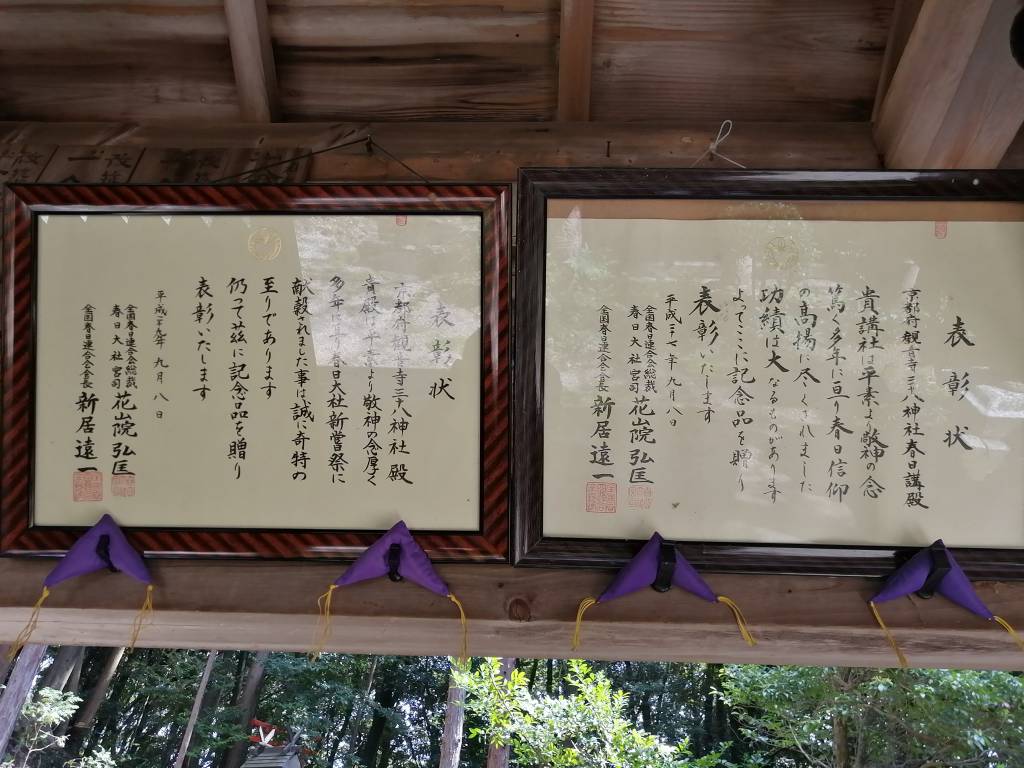 表彰状
京都府観音寺三八神社春日講殿
貴講社は平素より敬神の念
篤く多年に亘り春日信仰
の高揚に尽くされました
功績は大なるものがあります
よってここに記念品を贈り
表彰いたします
平成二十七年九月八日
全国春日連合会総裁
春日大社宮司 花山院弘匡
全国春日連合会会長 新居遠一
表彰状
京都府観音寺三八神社殿
貴殿は平素より敬神の念厚く
多年に亘り春日大社新嘗祭に
献穀されました事は誠に奇特の
至りであります
仍って茲に記念品を贈り
表彰いたします
平成二十九年九月八日
全国春日連合会総裁
春日大社宮司 花山院弘匡
全国春日連合会会長 新居遠一